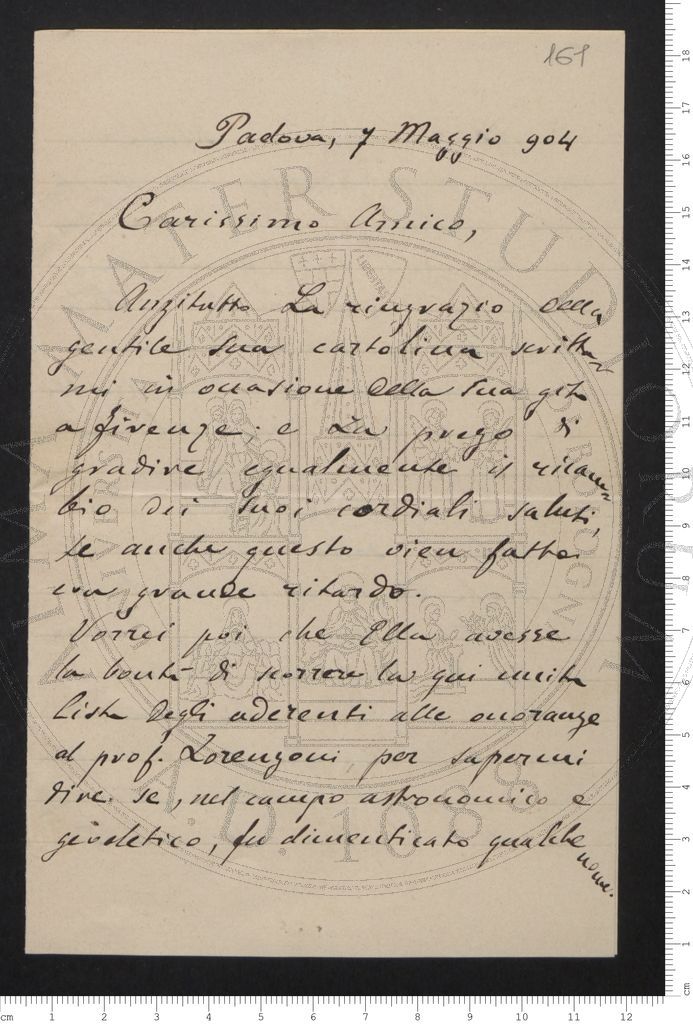 161
Padova, 7 Maggio 904
Carissimo Amico,
Anzitutto La ringrazio della
gentile sua cartolina scritta-
mi in occasione della sua gita
a Firenze; e La prego di
gradire egualmente il ricam-
bio dei suoi cordiali saluti,
se anche questo vien fatto
con grande ritardo.
Vorrei poi che Ella avesse
la bontà di scorrere la qui unita
lista degli aderenti alle onoranze
al prof. Lorenzoni, per sapermi
dire se, nel campo astronomico e
geodetico, fu dimenticato qualche
nome.
ALMA MATER STUDIORUM
A.D. 1088
LIBERTAS